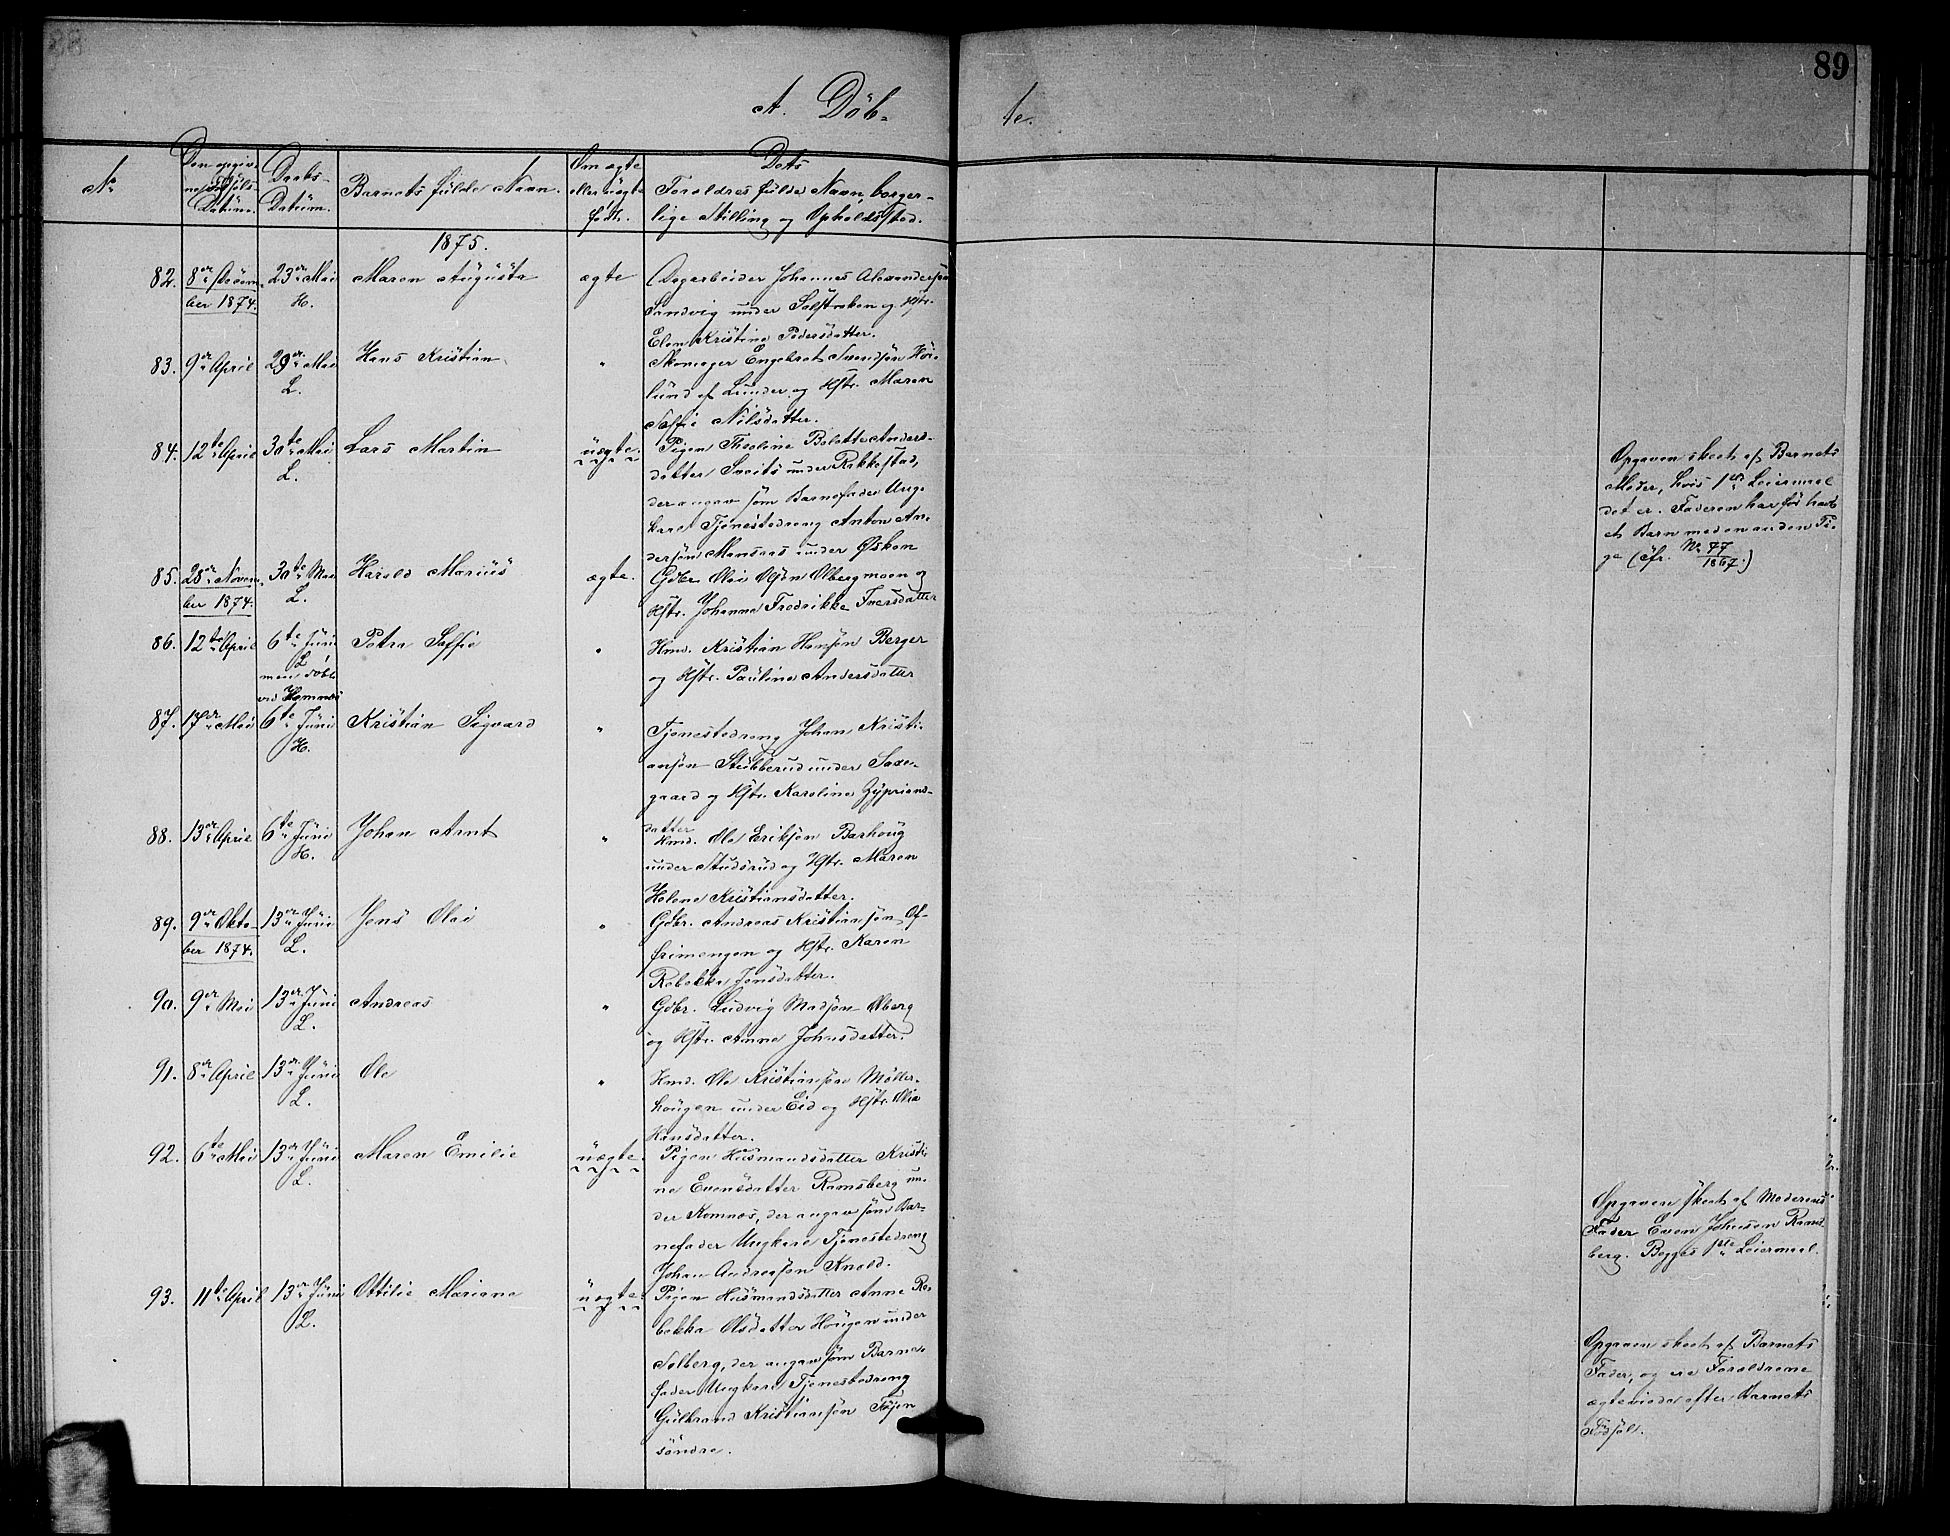 89
A. Döb-
te.
No
Den opgiv-
ne Födsels-
Datum.
Daabs-
Datum.
Barnets fulde Navn.
Om ægte
eller uægte
født.
Dets
Forældres fulde Navn, borger-
lige Stilling og Opholdssted.
1875.
82. 8de Decem-
ber 1874.
23de Mai
H.
Maren Augusta
ægte
Dagarbeider Johannes Alexandersøn
Sandvig under Solstraben og Hstr.
Elen Kristine Pedersdatter.
83. 9de April
29de Mai
L.
Hans Kristian
"
Skomager Engebret Svendsøn Høie-
lund af Lunder og Hstr. Maren
Soffie Nilsdatter.
84. 12te April
30te Mai
L.
Lars Martin
uægte.
Pigen Theoline Bolette Anders-
datter Sveits under Rakkestad,
der angav som Barnefader Ung-
karl Tjenestedreng Anton An-
dersøn Mansaas under Øsken
Opgaven skeet af Barnets
Moder, hvis 1ste Leiermaal
det er. Faderen har før havt
et Barn med en anden Pi-
ge (cfr. No 77/1867.)
85. 28de Novem-
ber 1874.
30te Mai
L.
Harald Marius
ægte.
Gdbr. Olai Olsøn Olbergmoen og
Hstr. Johanne Fredrikke Iversdatter
86. 12te April
6te Juni
L
men døbt
ved Hemnes
Petra Soffie
"
Hmd. Kristian Hansøn Berger
og Hstr. Pauline Andersdatter
87. 17de Mai
6te Juni
H.
Kristian Sigvard
"
Tjenestedreng Johan Kristi-
ansøn Stubberud under Saxe-
gaard og Hstr. Karoline Zyprians-
datter
88. 13de April
6te Juni
H.
Johan Arnt
"
Hmd. Ole Eriksøn Barhoug
under Studsrud og Hstr. Maren
Helene Kristiansdatter.
89. 9de Okto-
ber 1874.
13de Juni
L.
Jens Olai
"
Gdbr. Andreas Kristiansøn Of-
frimengen og Hstr. Karen
Rebekka Jensdatter.
90. 9de Mai
13de Juni
L.
Andreas
"
Gdbr. Ludvig Madsøn Olberg
og Hstr. Anne Johnsdatter.
91. 8de April
13de Juni
L.
Ole
"
Hmd. Ole Kristiansøn Møller-
hougen under Eid og Hstr. Olia
Hansdatter.
92. 6te Mai
13de Juni
L.
Maren Emilie
uægte
Pigen Husmandsdatter Kristi-
ne Evensdatter Ramsberg un-
der Komnæs, der angav som Bar-
nefader Ungkarl Tjenestedreng
Johan Andreasøn Knold.
Opgaven skeet af Moderens
Fader Even Johnsen Rams-
berg. Begges 1ste Leiermaal.
93. 11te April
13de Juni
L.
Ottilie Mariane
uægte
Pigen Husmandsdatter Anne Re-
bekka Olsdatter Hougen under
Solberg, der angav som Barne-
fader Ungkarl Tjenestedreng
Gulbrand Kristiansøn Tøien
søndre.
Opgaven skeet af Barnets
Fader, og ere Forældrene
ægteviede efter Barnets
Fødsel.